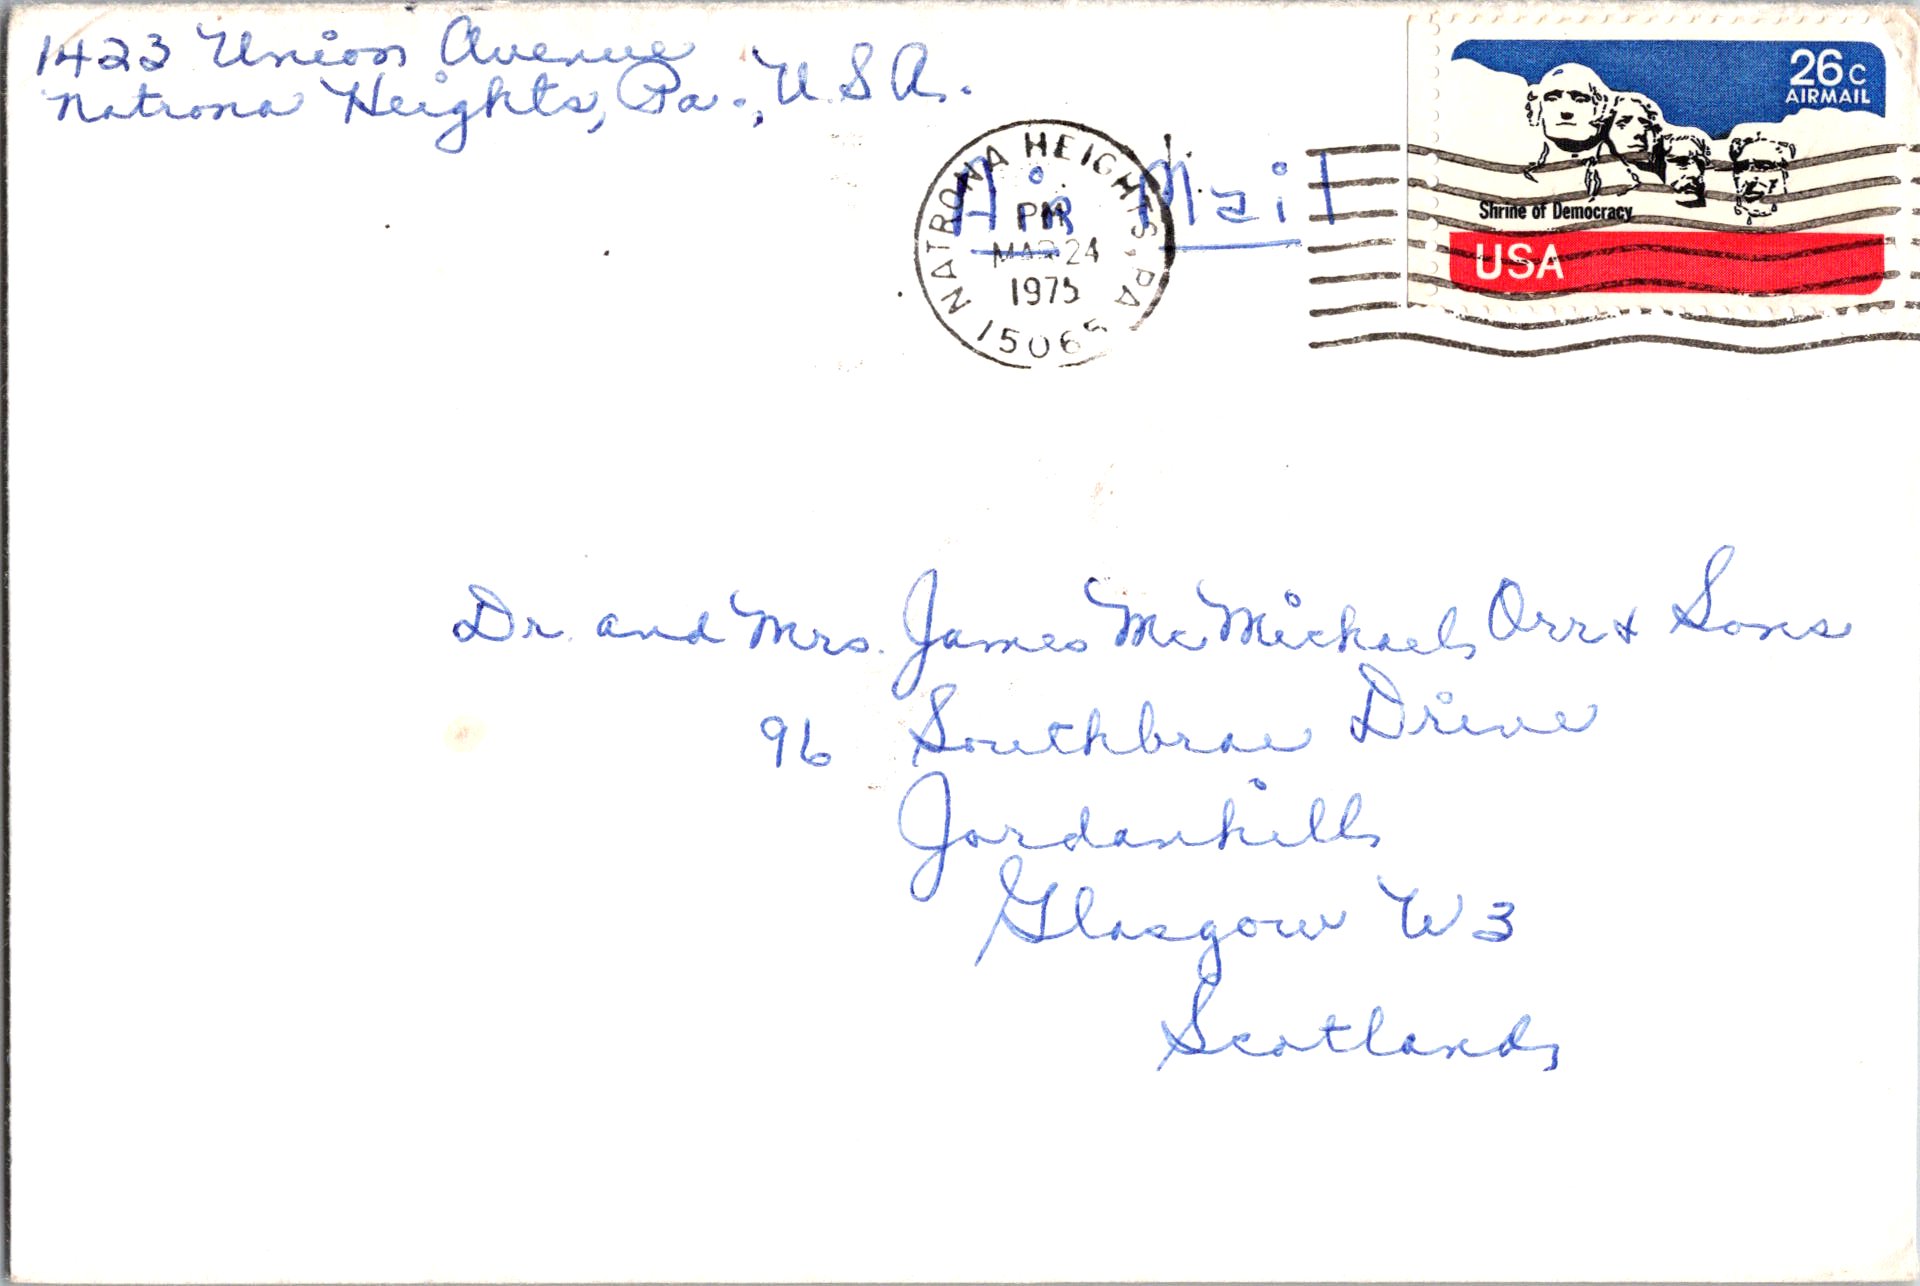 1423 Union Avenue
Natrona Heights, Pa., U.S.A.
26c
AIRMAIL
Shrine of Democracy
USA
NATRONA HEIGHTS, PA
PM
MAR 24
1975
15065
Air Mail
Dr. and Mrs. James McMichael Orr & Sons
96 Southbrae Drive
Jordanhill
Glasgow W3
Scotland